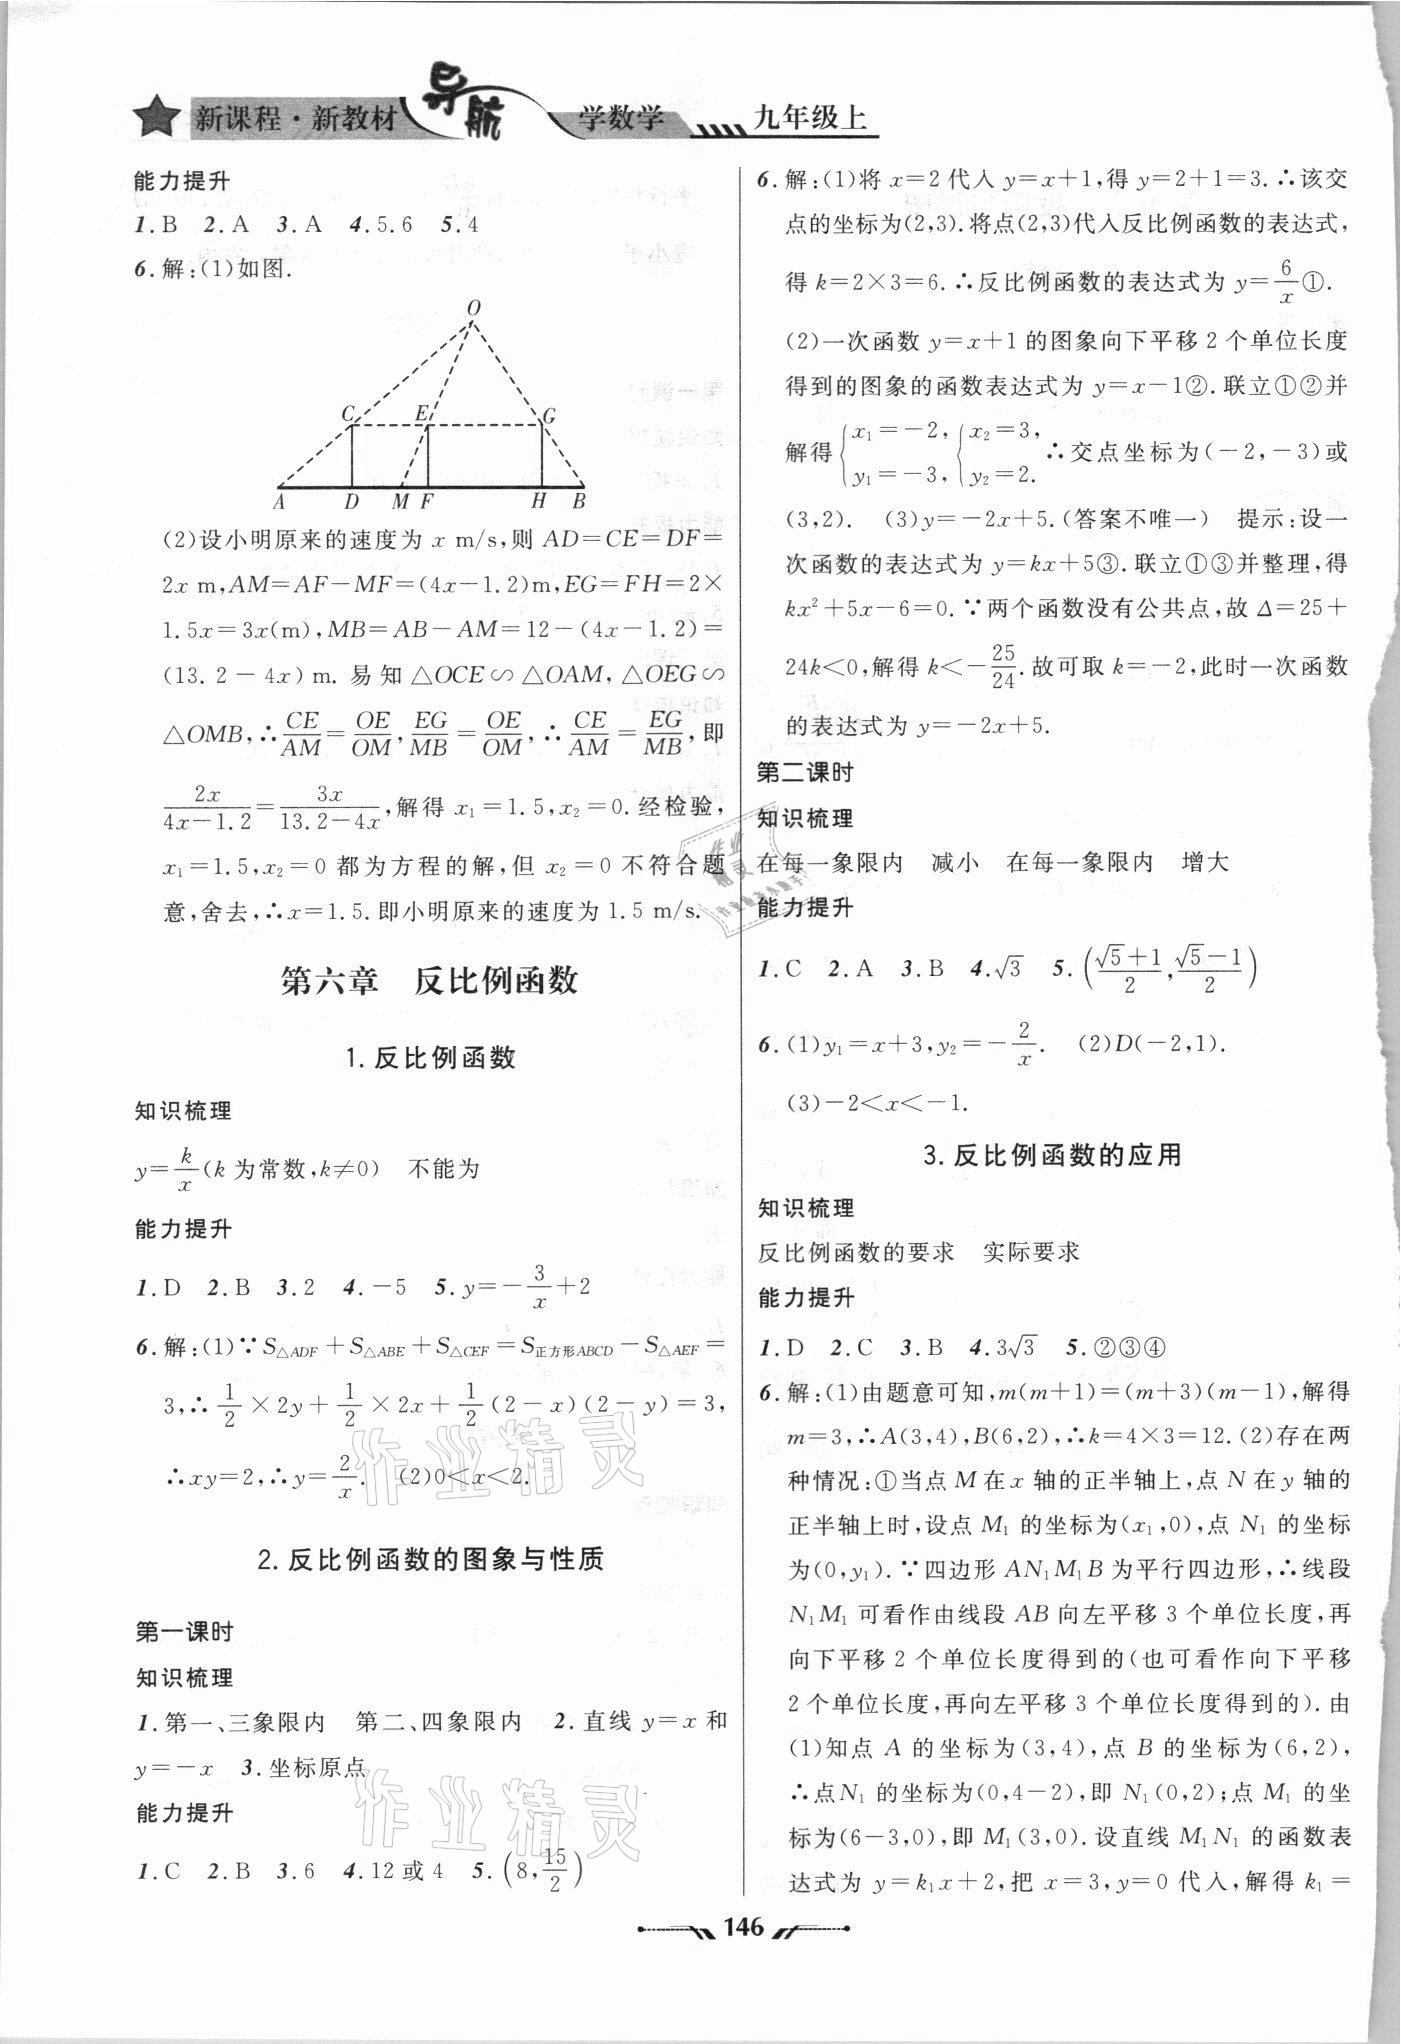 新课程·新教材 导航 学数学 九年级上
能力提升
1.B 2.A 3.A 4.5.6 5.4
6.解:(1)如图.
O
C E G
A D M F H B
(2)设小明原来的速度为 x m/s,则 AD=CE=DF=
2x m,AM=AF-MF=(4x-1.2)m,EG=FH=2×
1.5x=3x(m),MB=AB-AM=12-(4x-1.2)=
(13.2-4x)m.易知△OCE∽△OAM,△OEG∽
△OMB,∴CE/AM=OE/OM,EG/MB=OE/OM,∴CE/AM=EG/MB,即
2x/(4x-1.2)=3x/(13.2-4x),解得 x₁=1.5,x₂=0.经检验,
x₁=1.5,x₂=0 都为方程的解,但 x₂=0 不符合题
意,舍去,∴x=1.5.即小明原来的速度为1.5 m/s.
第六章 反比例函数
1.反比例函数
知识梳理
y=k/x(k 为常数,k≠0) 不能为
能力提升
1.D 2.B 3.2 4.-5 5.y=-3/x+2
6.解:(1)∵S△ADF+S△ABE+S△CEF=S正方形ABCD-S△AEF=
3,∴1/2×2y+1/2×2x+1/2(2-x)(2-y)=3,
∴xy=2,∴y=2/x. (2)0<x<2.
2.反比例函数的图象与性质
第一课时
知识梳理
1.第一、三象限内 第二、四象限内 2.直线 y=x 和
y=-x 3.坐标原点
能力提升
1.C 2.B 3.6 4.12或4 5.(8,15/2)
6.解:(1)将 x=2代入 y=x+1,得 y=2+1=3.∴该交
点的坐标为(2,3).将点(2,3)代入反比例函数的表达式,
得 k=2×3=6.∴反比例函数的表达式为 y=6/x①.
(2)一次函数 y=x+1的图象向下平移2个单位长度
得到的图象的函数表达式为 y=x-1②.联立①②并
解得{x₁=-2,y₁=-3,{x₂=3,y₂=2.∴交点坐标为(-2,-3)或
(3,2). (3)y=-2x+5.(答案不唯一) 提示:设一
次函数的表达式为 y=kx+5③.联立①③并整理,得
kx²+5x-6=0.∵两个函数没有公共点,故 Δ=25+
24k<0,解得 k<-25/24.故可取 k=-2,此时一次函数
的表达式为 y=-2x+5.
第二课时
知识梳理
在每一象限内 减小 在每一象限内 增大
能力提升
1.C 2.A 3.B 4.√3 5.((√5+1)/2,(√5-1)/2)
6.(1)y₁=x+3,y₂=-2/x. (2)D(-2,1).
(3)-2<x<-1.
3.反比例函数的应用
知识梳理
反比例函数的要求 实际要求
能力提升
1.D 2.C 3.B 4.3√3 5.②③④
6.解:(1)由题意可知,m(m+1)=(m+3)(m-1),解得
m=3,∴A(3,4),B(6,2),∴k=4×3=12.(2)存在两
种情况:①当点 M 在 x 轴的正半轴上,点 N 在 y 轴的
正半轴上时,设点 M₁ 的坐标为(x₁,0),点 N₁ 的坐标
为(0,y₁).∵四边形 AN₁M₁B 为平行四边形,∴线段
N₁M₁ 可看作由线段 AB 向左平移3个单位长度,再
向下平移2个单位长度得到的(也可看作向下平移
2个单位长度,再向左平移3个单位长度得到的).由
(1)知点 A 的坐标为(3,4),点 B 的坐标为(6,2),
∴点N₁ 的坐标为(0,4-2),即 N₁(0,2);点 M₁ 的坐
标为(6-3,0),即 M₁(3,0).设直线 M₁N₁ 的函数表
达式为 y=k₁x+2,把 x=3,y=0 代入,解得 k₁=
146
作业精灵
作业精灵
作业精灵